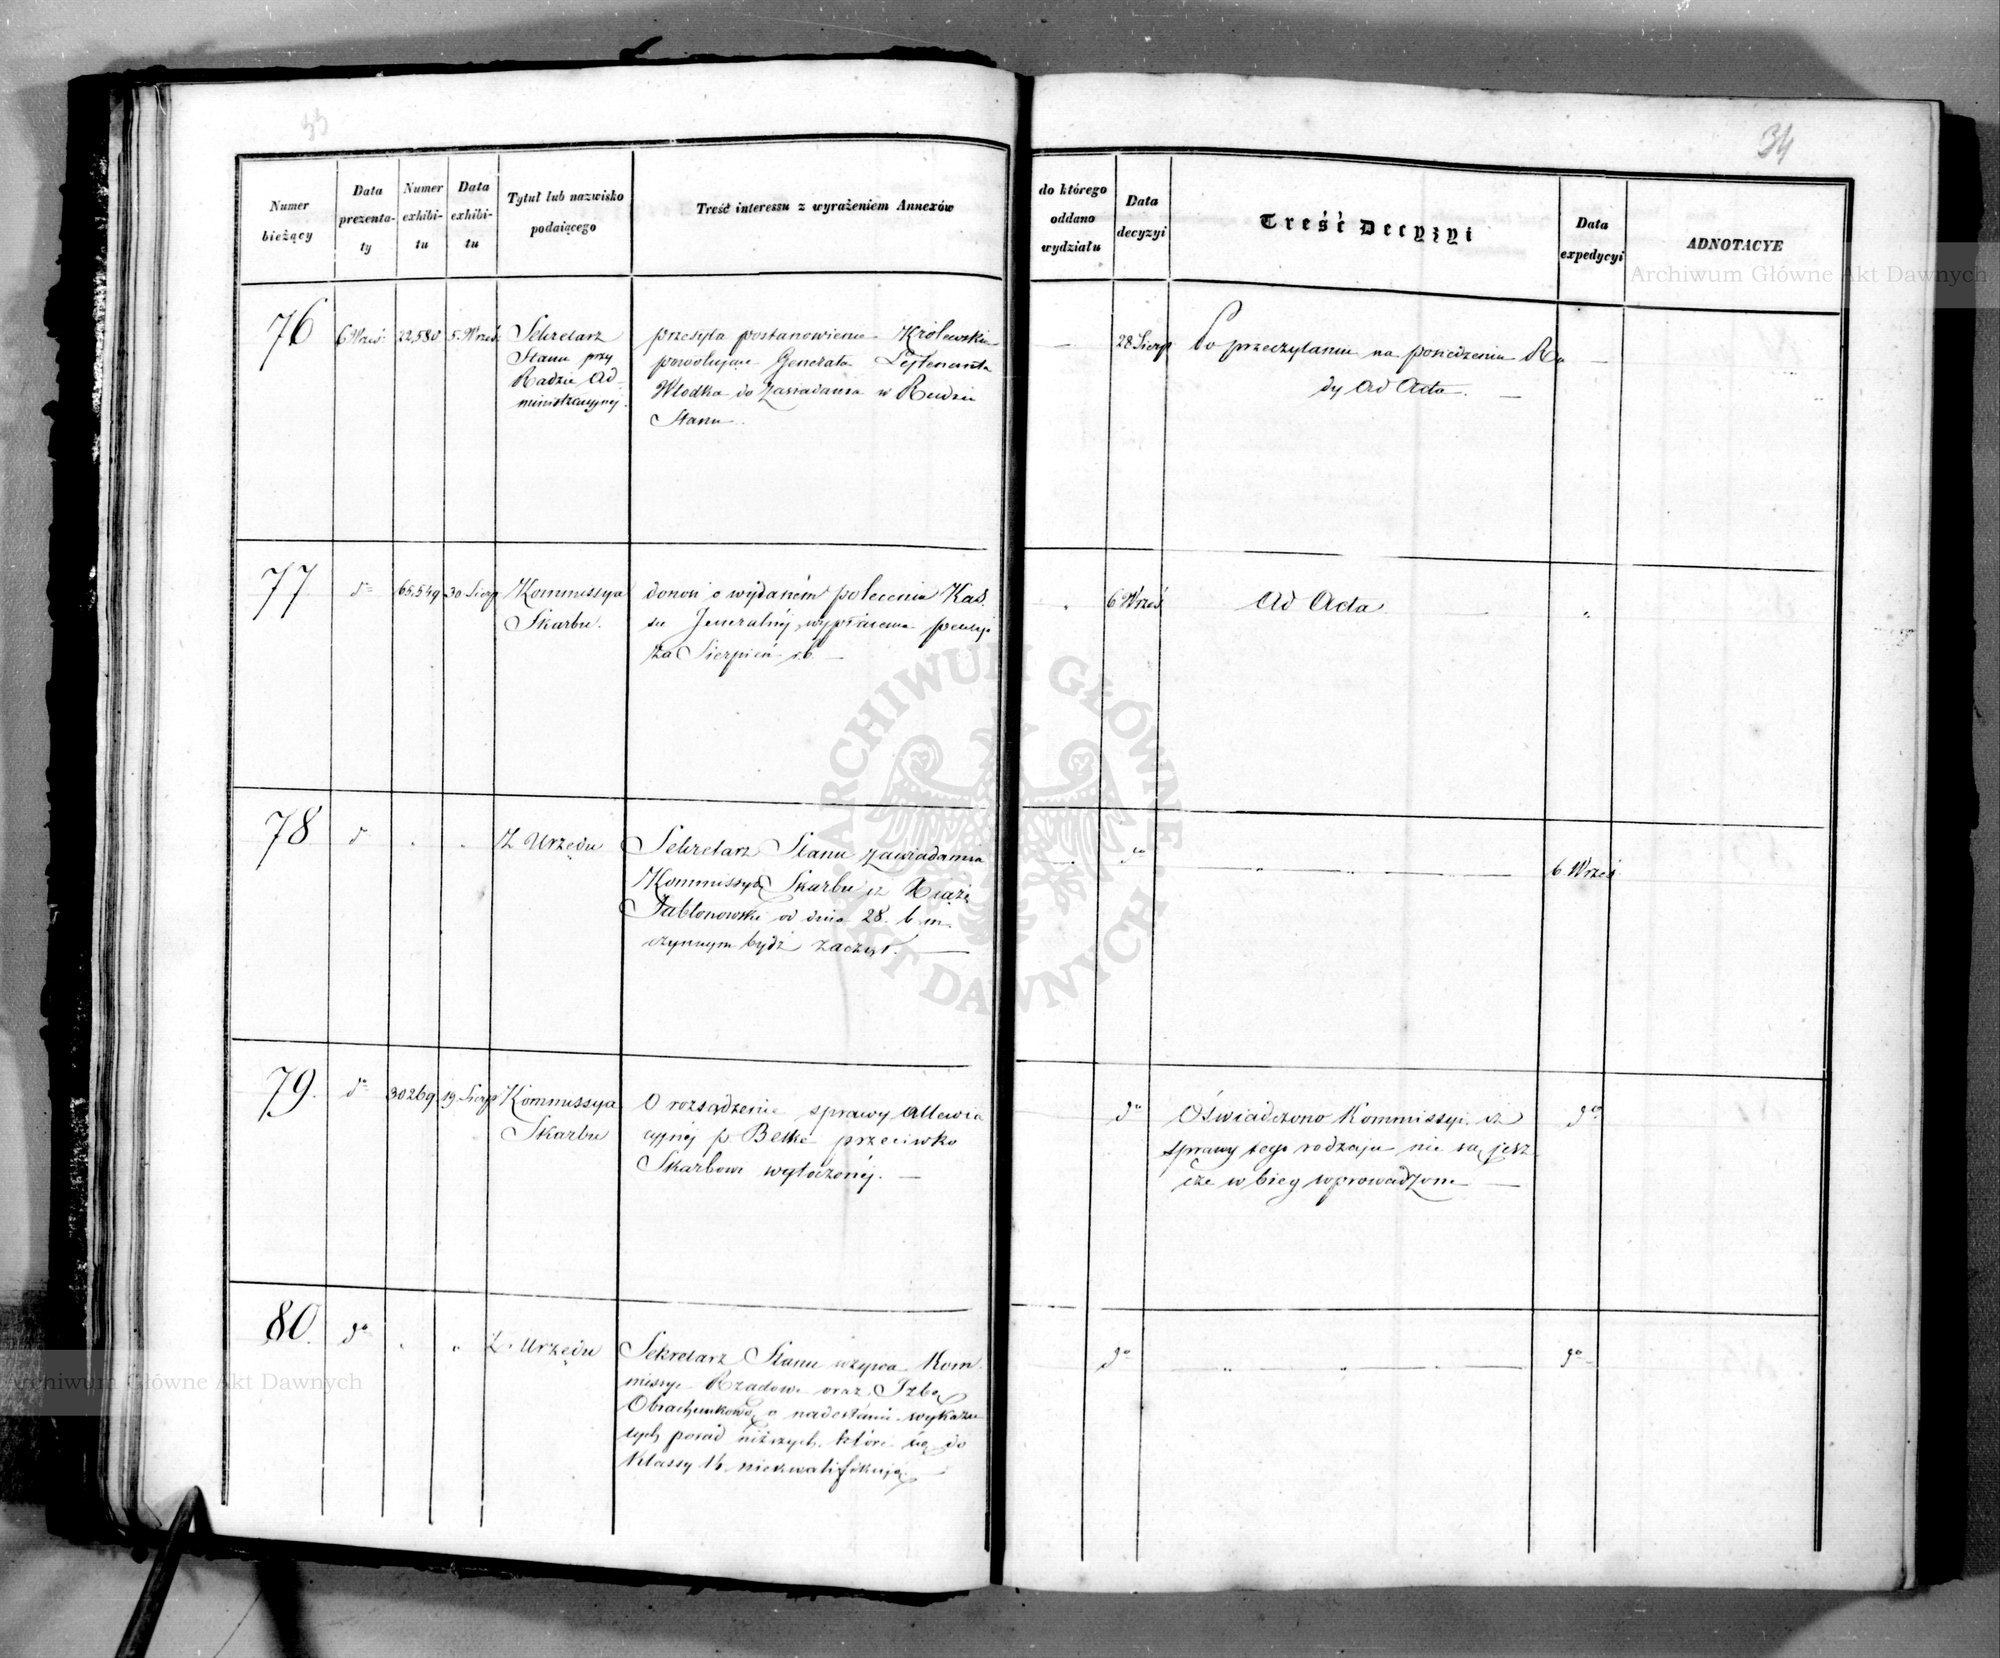 33
34
Numer bieżący
Data prezenta-ty
Numer exhibi-tu
Data exhibi-tu
Tytuł lub nazwisko podaiącego
Treść interessu z wyrażeniem Annexów
do którego oddano wydziału
Data decyzyi
Treść Decyzyi
Data expedycyi
ADNOTACYE
76
6 Wrześ
22,580
5 Wrześ
Sekretarz
Stanu przy
Radzie Ad-
ministracyjnej.
przesyła postanowienie Królewskie
powołujące Generała Lejtenanta
Włodka do zasiadania w Radzie
Stanu.
28 Sierp
Po przeczytaniu na posiedzeniu Ra
dy ad Acta.
77
do
65,549
30 Sierp
Kommissya
Skarbu.
donosi o wydaném poleceniu Kas
sie Jeneralnéj, wypłacenia pensyi
za Sierpień r.b.
6 Wrześ
ad Acta
78
do
Z Urzędu
Sekretarz Stanu zawiadamia
Kommissyą Skarbu iż Xiąże
Jabłonowski od dnia 28. b.m.
czynnym bydź zaczął.
do
6 Wrześ
79.
do
30269
19 Sierp
Kommissya
Skarbu
O rozsądzenie sprawy allewia
cyjnéj p. Belke przeciwko
Skarbowi wytoczonéj.
do
Oświadczono Kommissyi iż
sprawy tego rodzaju nie są jesz
cze w bieg wprowadzone
do
80.
do
Z Urzędu
Sekretarz Stanu wzywa Kom
missye Rządowe oraz Izbę
Obrachunkową o nadesłanie wykazu
tych posad niższych, które się do
Klassy 14 niekwalifikują.
do
do
Archiwum Główne Akt Dawnych
ARCHIWUM GŁÓWNE AKT DAWNYCH
Archiwum Główne Akt Dawnych